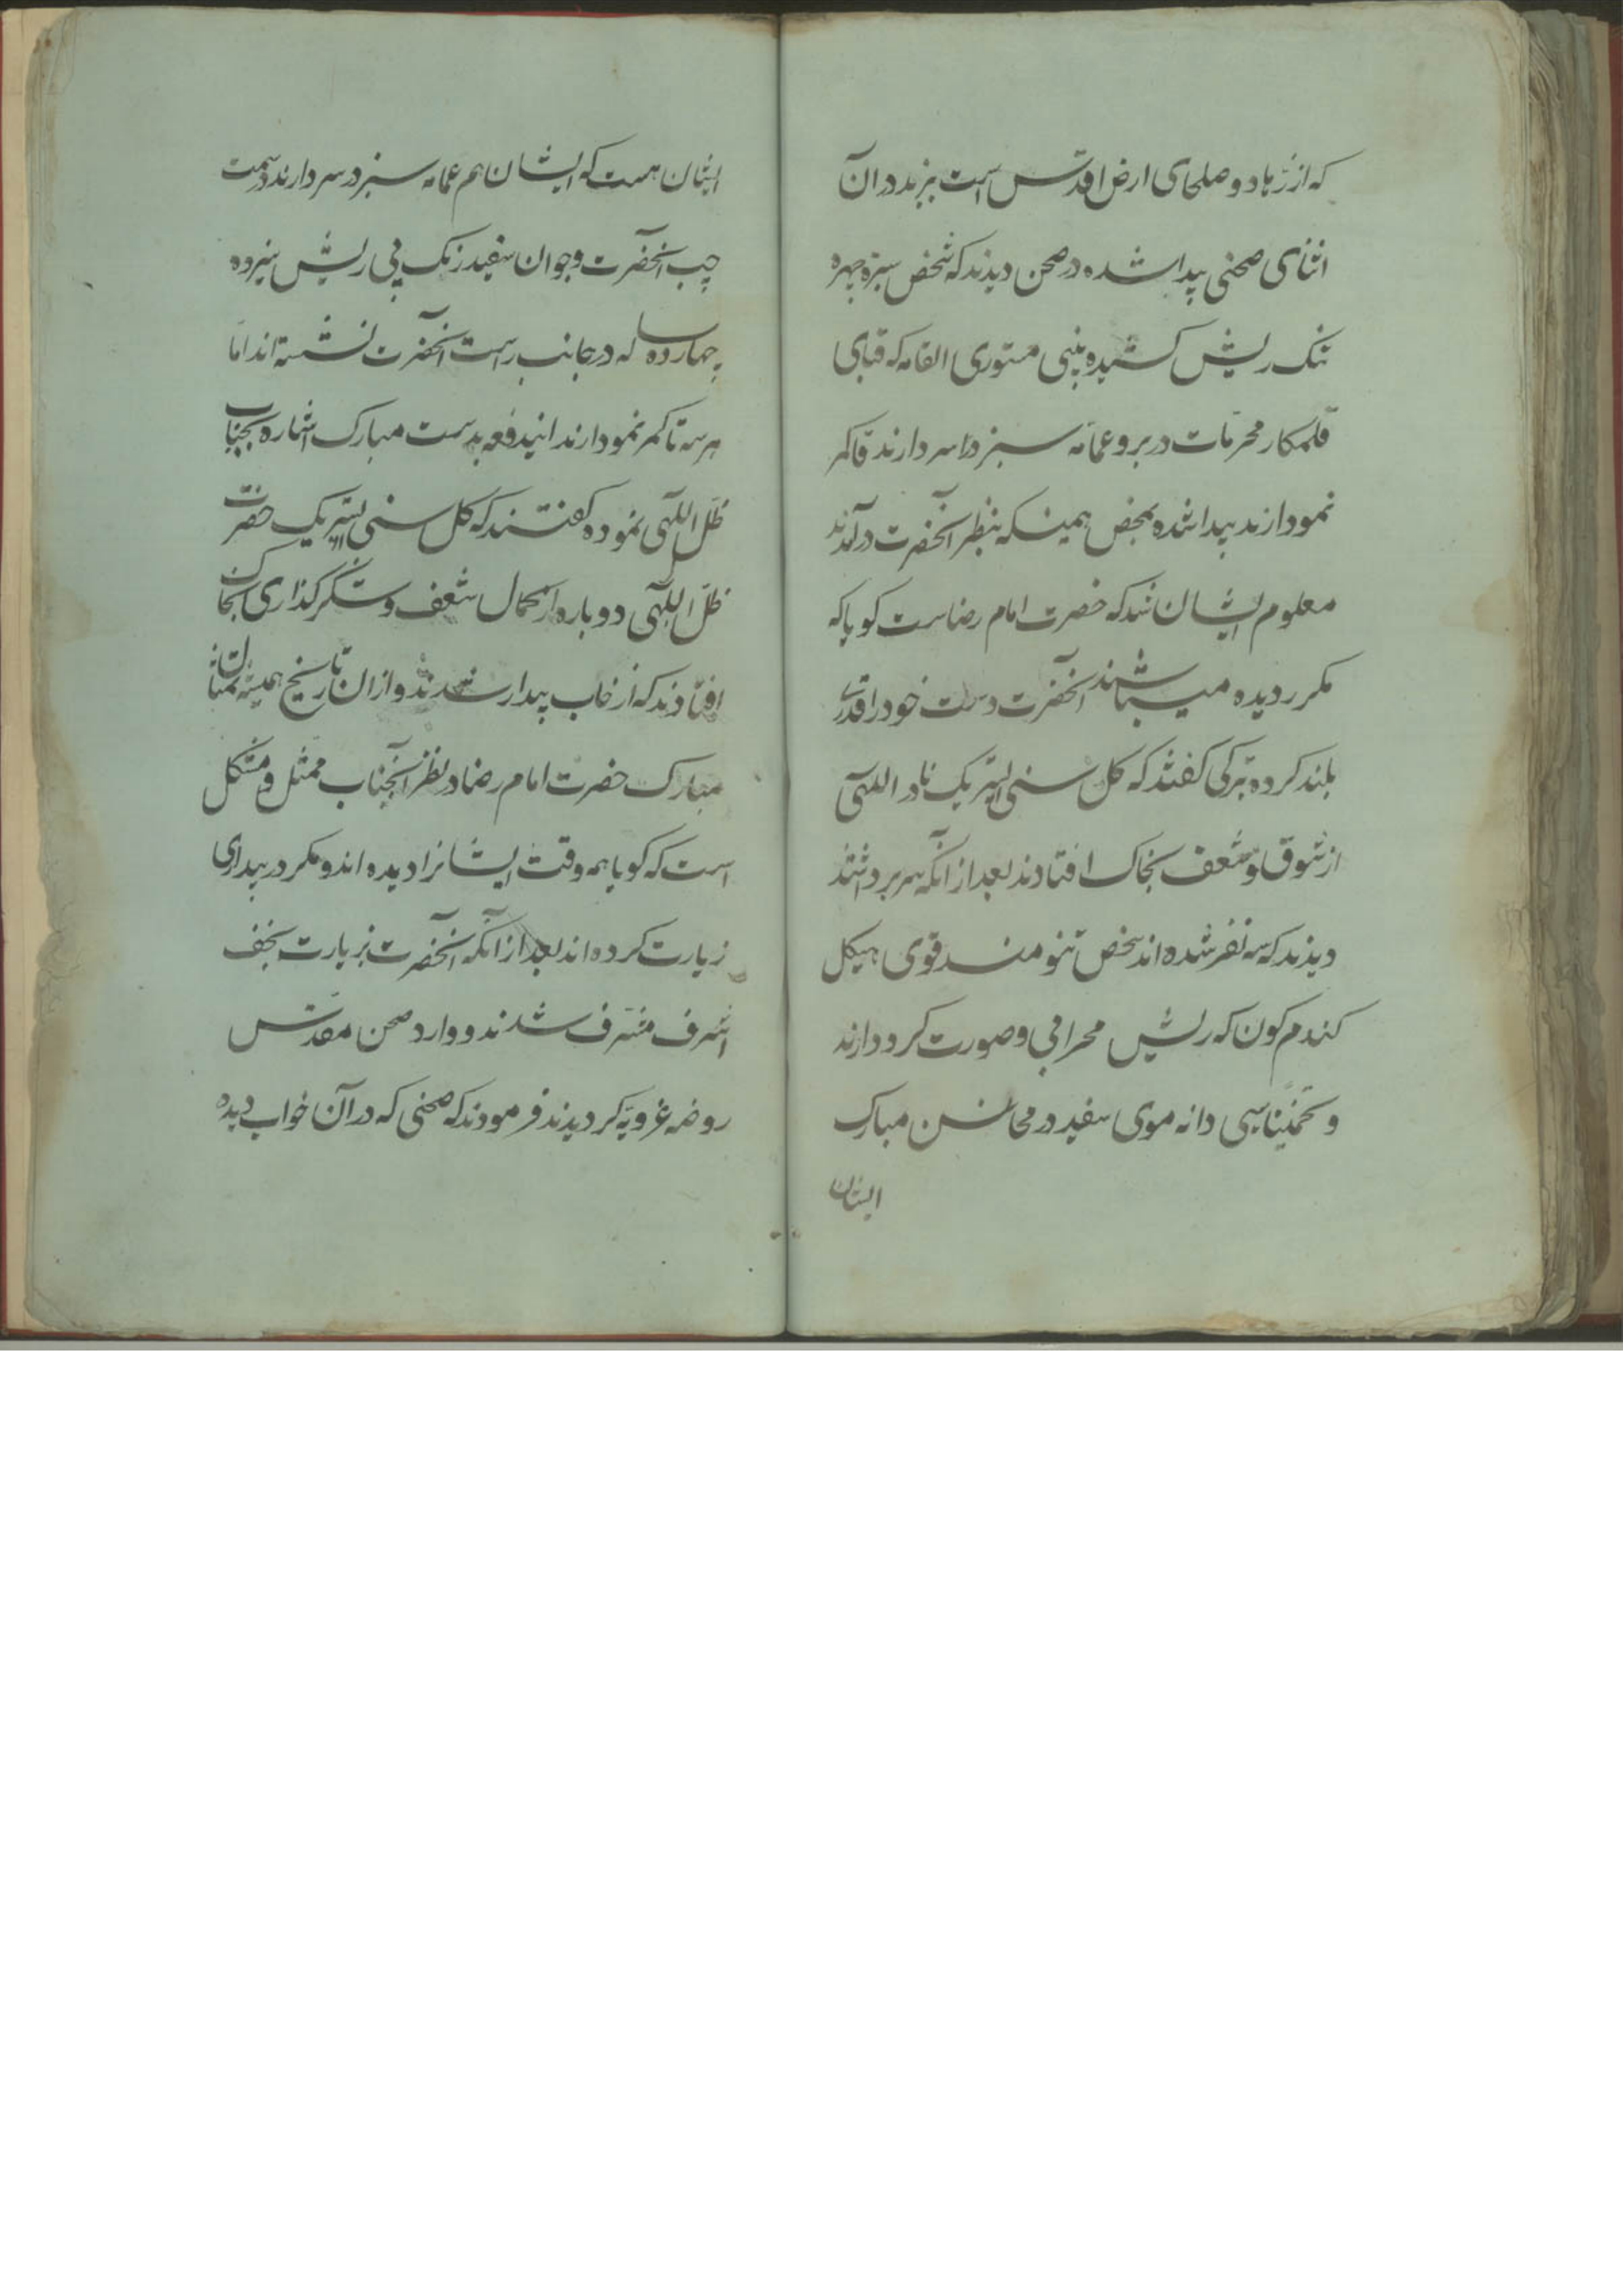 که از زهاد و صلحای ارض اقدس است بزند در آن
اثنای صحنی پیدا شده در صحن دیدند که شخص سبزه چهره
تنک ریش کشیده بینی مستوری القامه که قبای
قلمکار محرمات در بر و عمامه سبز در سر دارند تا کمر
نمودارند پیدا شده بمحض همینکه بنظر آنحضرت درآمدند
معلوم ایشان شد که حضرت امام رضاست کویا که
مکرر دیده میباشند آنحضرت دست خود را قدری
بلند کرده بترکی کفتند که کل سنی ایستریک نادر اللهی
از شوق و شعف بخاک افتادند بعد از آنکه سر برداشتند
دیدند که سه نفر شده اند شخص تنومند قوی هیکل
کندم کون که ریش محرابی و صورت کرد دارند
و تخمیناً سی دانه موی سفید در محاسن مبارک
ایشان
ایشان هست که ایشان هم عمامه سبز در سر دارند در سمت
چپ آنحضرت و جوان سفید رنک بی ریش سیزده
چهارده ساله در جانب راست آنحضرت نشسته اند اما
هر سه تا کمر نمودارند ایندفعه بدست مبارک اشاره بجناب
ظل اللهی نموده کفتند که کل سنی ایستریک حضرت
ظل اللهی دوباره از کمال شعف و شکر کذاری بخاک
افتادند که از خاب بیدار شدند و از آن تاریخ همیشه تمثال
مبارک حضرت امام رضا در نظر آنجناب ممثل و مشکل
است که کویا همه وقت ایشانرا دیده اند و مکرر در بیداری
زیارت کرده اند بعد از آنکه آنحضرت بزیارت نجف
اشرف مشرف شدند و وارد صحن مقدس
روضه غرویه کردیدند فرمودند که صحنی که در آن خواب دیده